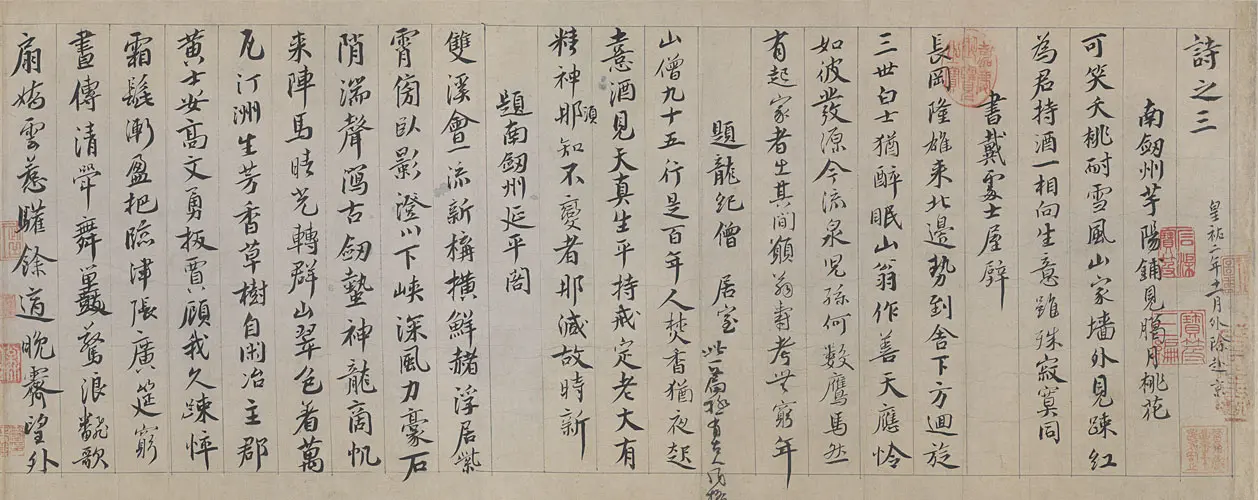 詩之三
皇祐二年十一月外除赴京
南劔州芋陽鋪見臈月桃花
可笑夭桃耐雪風山家墻外見踈紅
為君持酒一相向生意雖殊寂寞同
書戴處士屋壁
長岡隆雄來北邊勢到舍下方迴旋
三世白士猶醉眠山翁作善天應怜
如彼發源今流泉兒孫何數鷹馬然
有起家者生其間願翁壽考無窮年
題龍紀僧居室 此一篇極有古人風格
山僧九十五行是百年人焚香猶夜起
憙酒見天真生平持戒定老大有
精神那須知不變者那減故時新
題南劔州延平閣
雙溪會一流新構橫鮮赭浮居紫
霄傍臥影澄川下峽深風力豪石
陗湍聲瀉古劔蟄神龍商帆
來陣馬晴光轉群山翠色着萬
瓦汀洲生芳香草樹自閑冶主郡
黃士安高文勇扳賈顧我久踈悴
霜髭漸盈把臨津張廣筵窮
晝傳清斚舞疊鼓驚浪飜歌
扇嬌雲惹驩餘適晚霽望外